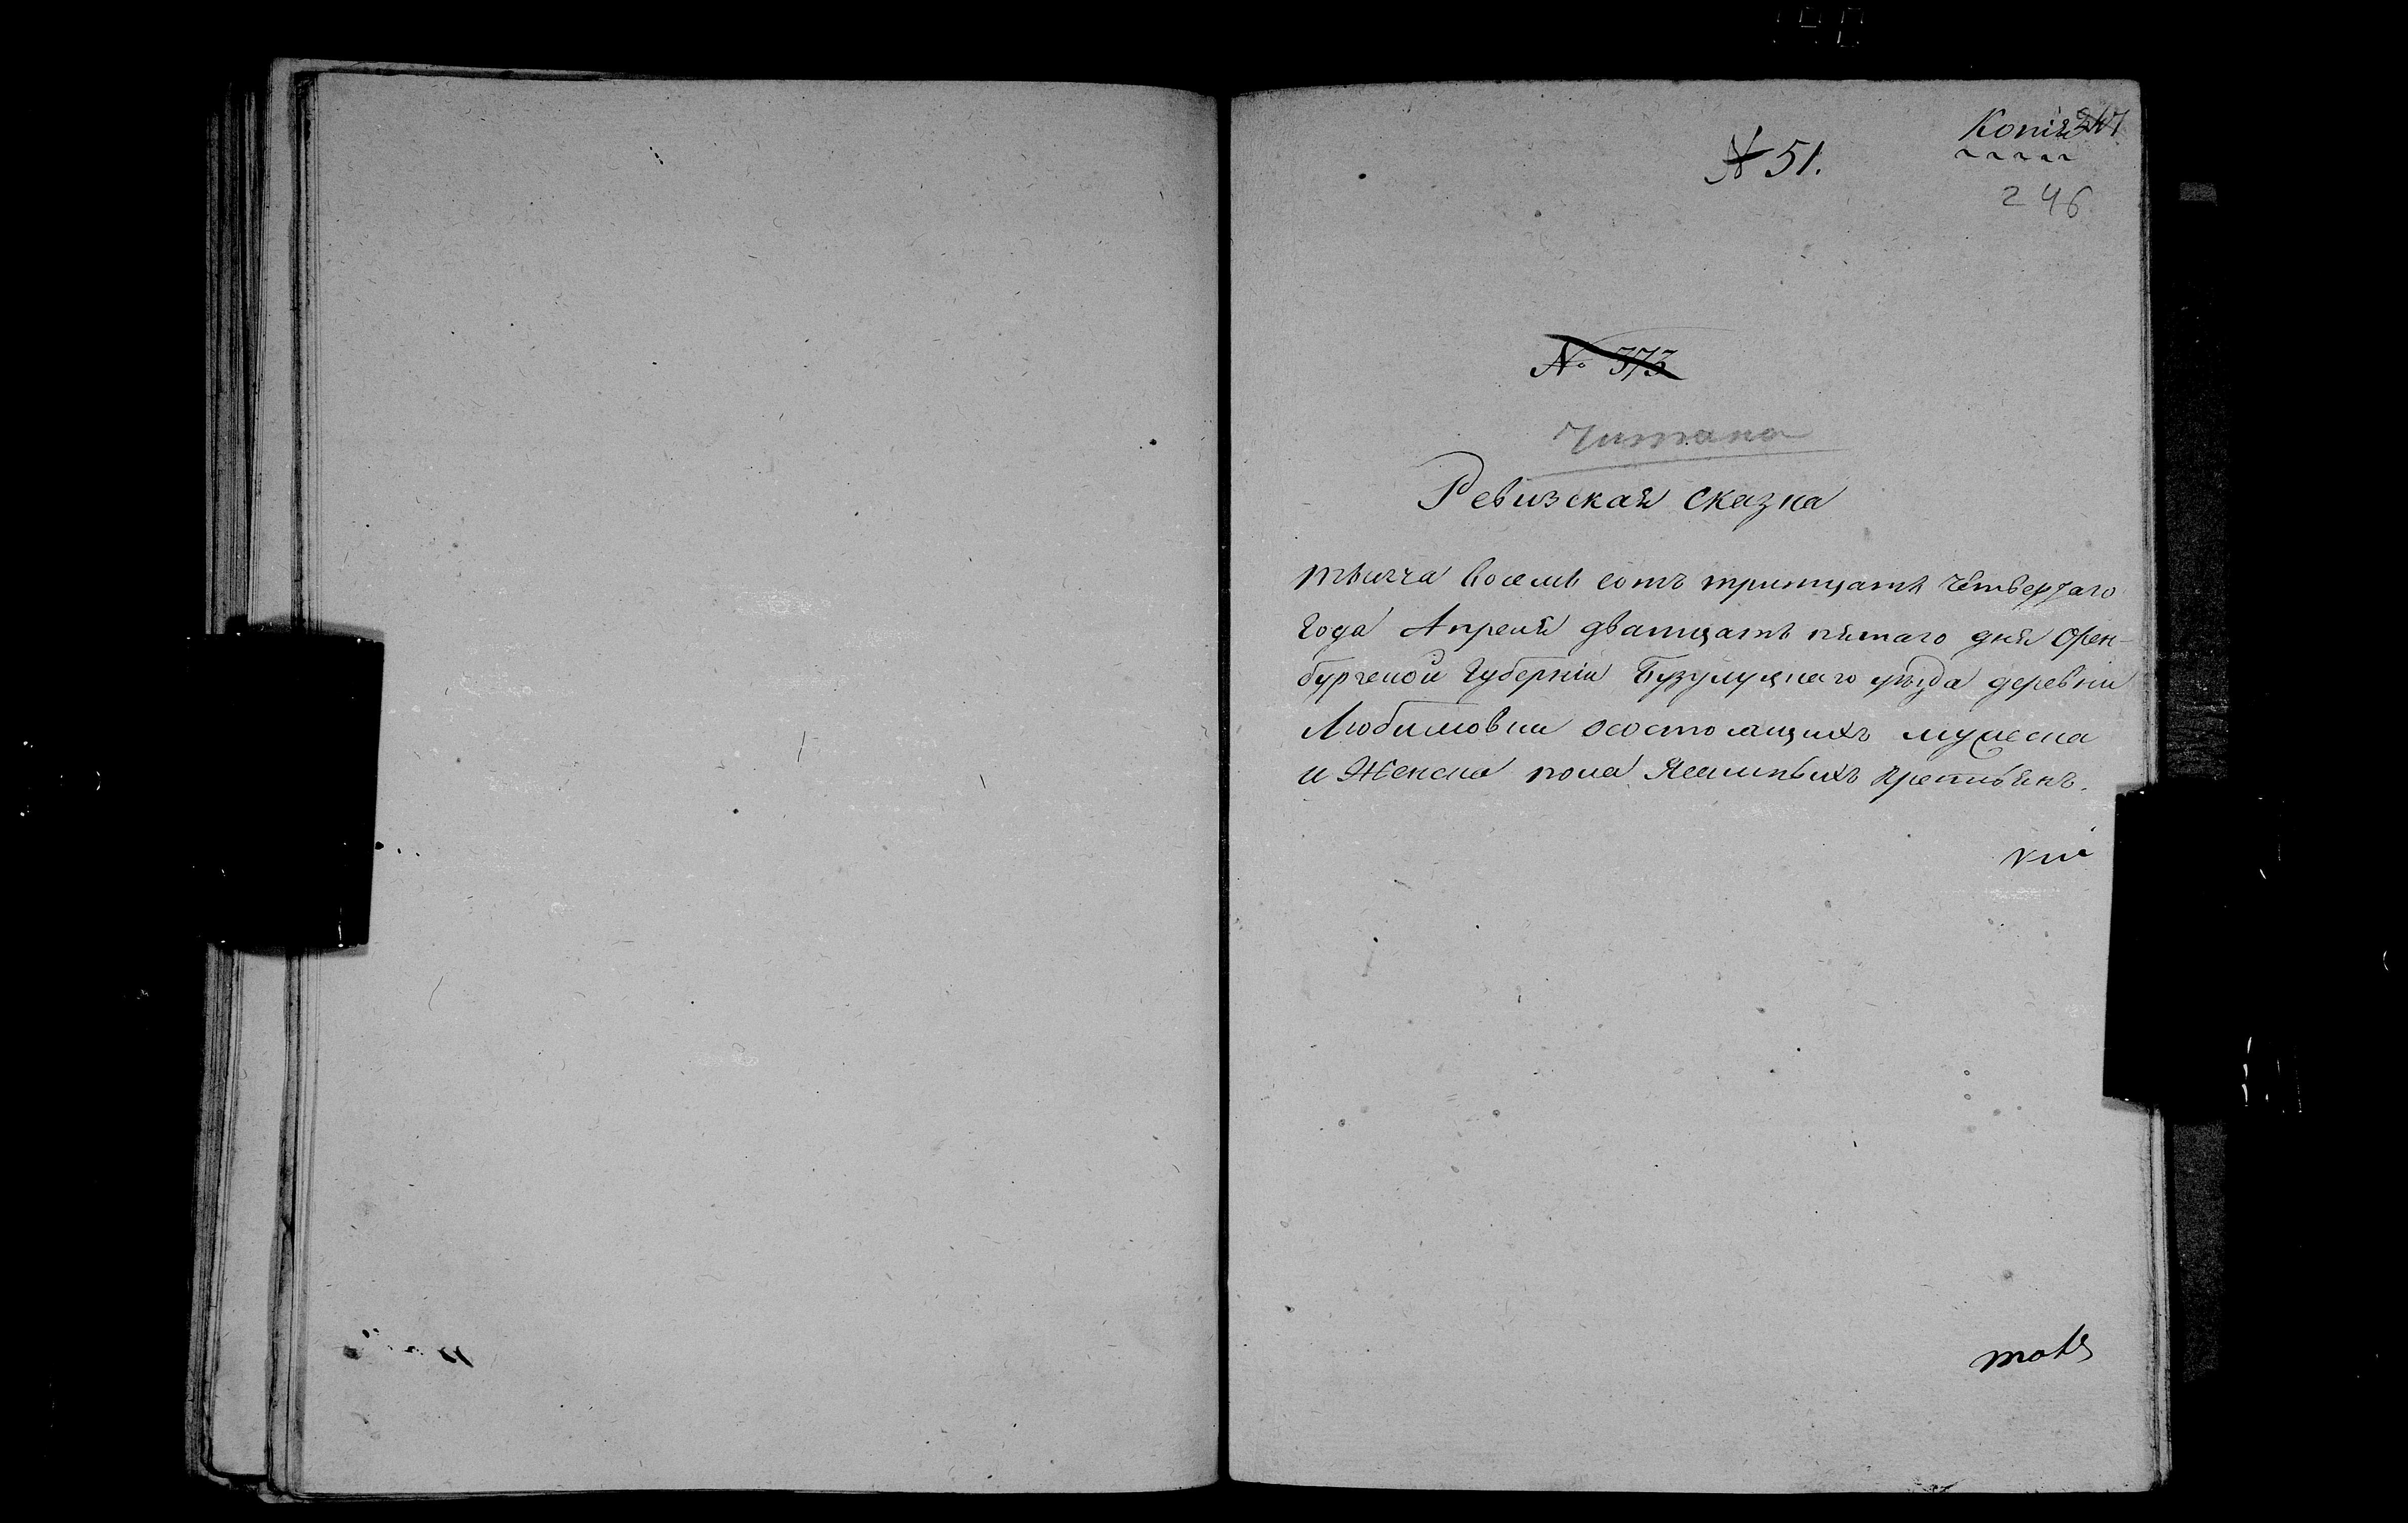 Копія 247
№ 51.
246
№ 373
Читана
Ревизская сказка
тысяча восемь сотъ тритцать четвертаго
года Апреля дватцать пятаго дня Орен-
бургской Губерніи Бузулуцкаго уѣзда деревни
Любимовки осостоящихъ мужеска
и Женска пола Ясашныхъ крестьянъ.